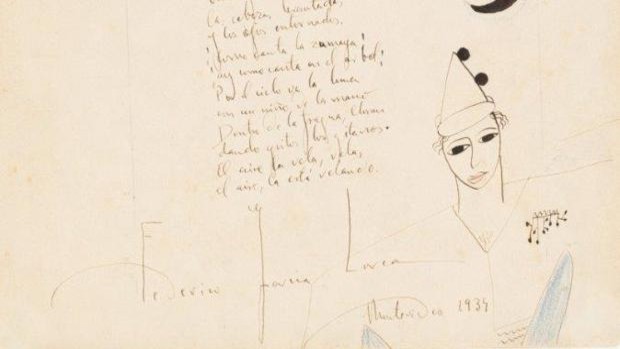 las cabezas levantadas,
y los ojos entornados.
¡Como canta la zumaya!
¡ay como canta en el arbol!
Por el cielo va la luna
con un niño de la mano
Dentro de la fragua, lloran
dando gritos los gitanos.
El aire la vela, vela,
el aire, la está velando.
Federico García Lorca
Montevideo 1934